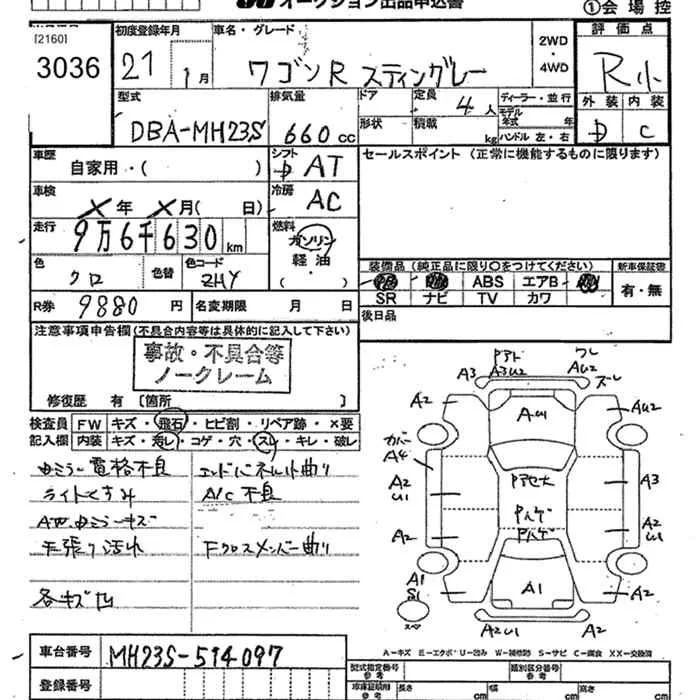 オークション出品申込書
①会場控
[2160]
3036
初度登録年月
21 1月
車名・グレード
ワゴンR スティングレー
2WD・4WD
評価点
R小
外装 内装
D C
型式
DBA-MH23S
排気量
660cc
ドア
形状
定員 4人
積載 kg
ディーラー・並行
モデル年式 年
ハンドル 左・右
車歴
自家用・( )
シフト AT
セールスポイント(正常に機能するものに限ります)
車検
X年 X月( 日)
冷房 AC
走行
9万6千630km
燃料
ガソリン
軽油
( )
色 クロ
色替
色コード ZHY
装備品(純正品に限り○をつけてください)
新車保証書
ABS エアB
SR ナビ TV カワ
有・無
R券 9880円
名変期限 月 日
後日品
注意事項申告欄(不具合内容等は具体的に記入して下さい)
事故・不具合等
ノークレーム
修復歴 有 〔箇所 〕
検査員記入欄
FW キズ・飛石・ヒビ割・リペア跡・×要
内装 キズ・汚レ・コゲ・穴・スレ・キレ・破レ
電格不良
エンドパネル曲り
ライトくすみ
A/C不良
AW キズ
天張り汚れ
Fクロスメンバー曲り
各キズ凹
A3 A3U2 AU2
A2 AU1 AU2
カバー A4
A2 U1
A3
A2
A2 U1
A1 S1
A1
A2
スペア
A2U1 A2
A-キズ E-エクボ U-凹み W-補修跡 S-サビ C-腐食 XX-交換済
車台番号 MH23S-514097
登録番号
型式指定番号 参考
類別区分番号 参考
車庫証明用 参考
長さ cm
幅 cm
高さ cm